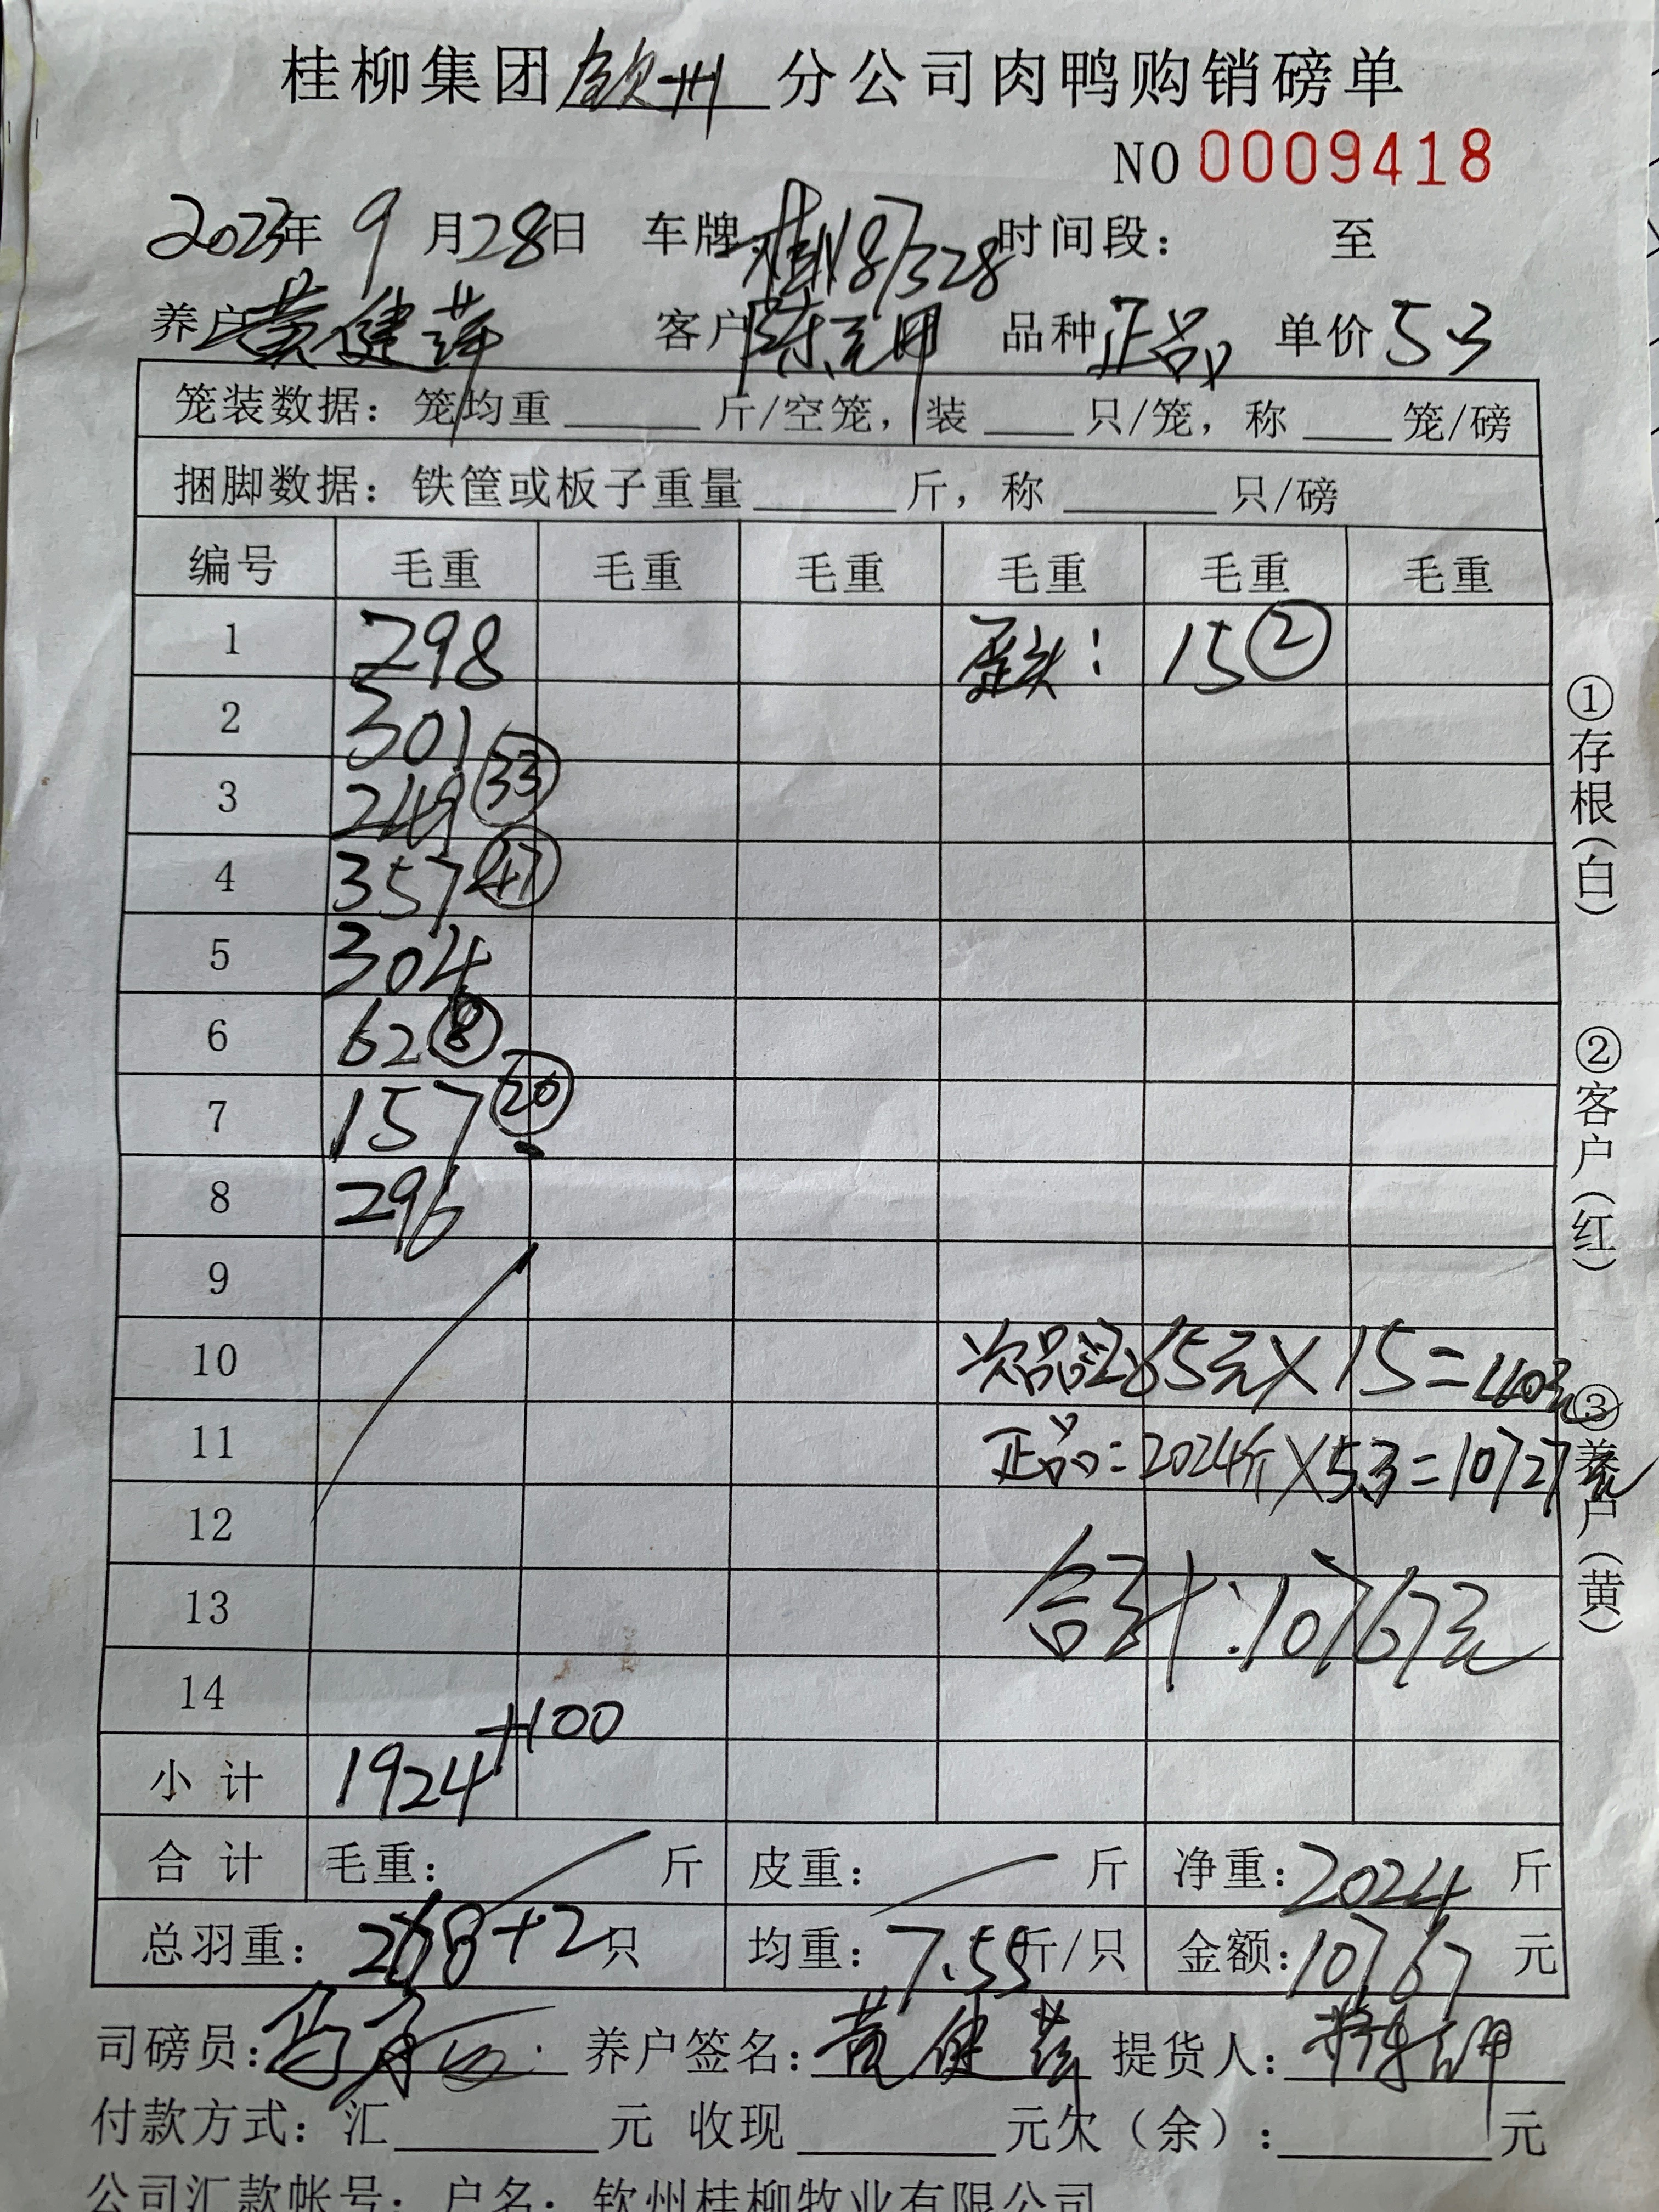 桂柳集团钦州分公司肉鸭购销磅单
NO 0009418
2023年 9 月28日 车牌:桂N87328 时间段: 至
养户黄健萍 客户 品种正品 单价53
笼装数据: 笼均重 斤/空笼, 装 只/笼, 称 笼/磅
捆脚数据: 铁筐或板子重量 斤, 称 只/磅
编号 毛重 毛重 毛重 毛重 毛重 毛重
1 298 歪头: 15②
2 301
3 249 33
4 357 47
5 304
6 62 8
7 157 20
8 296
9
10 次品:2.65元×15=40元
11 正品:2024斤×5.3=10727元
12
13 合计:10767元
14
小计 1924+100
合计 毛重: 斤 皮重: 斤 净重:2024 斤
总羽重: 268+2只 均重:7.55斤/只 金额:10767 元
司磅员: 养户签名:黄健萍 提货人:
付款方式: 汇 元 收现 元欠(余): 元
公司汇款帐号: 户名: 钦州桂柳牧业有限公司
①存根(白)
②客户(红)
③养户(黄)